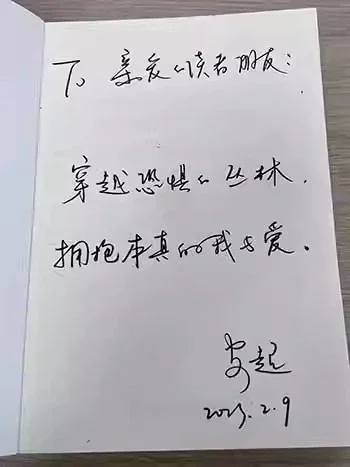 To 亲爱的读者朋友：
穿越恐惧的丛林，
拥抱本真的我与爱。
2023.2.9